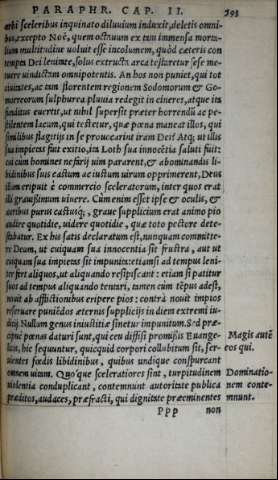 PARAPHR. CAP. II. 293
orbi sceleribus inquinato diluuium induxit, deletis omni-
bus, excepto Noë, quem octauum ex tam immensa morta-
lium multitudine uoluit esse incolumem, quòd cæteris con
temptis Dei leuitate, solus extructa arca testaretur sese me-
tuere uindictam omnipotentis. An hos non puniet, qui tot
ciuitates, ac tam florentem regionem Sodomorum & Go-
morreorum sulphurea pluuia redegit in cineres, atque ita
funditus euertit, ut nihil supersit præter horrendũ ac pe-
stilentem lacum, qui testetur, quæ pœna maneat illos, qui
similibus flagitijs in se prouocarint iram Dei? Atq; ut illis
sua impietas fuit exitio, ita Loth sua innocẽtia saluti fuit:
cui cum homines nefarij uim pararent, & abominandis li-
bidinibus suis castum ac iustum uirum opprimerent, Deus
illum eripuit è commercio sceleratorum, inter quos erat
illi grauissimum uiuere. Cum enim esset ipse & oculis, &
auribus purus castusq;, graue supplicium erat animo pio
audire quotidie, uidere quotidie, quæ toto pectore dete-
stabatur. Ex his satis declaratum est, nunquam committe-
re Deum, ut cuiquam sua innocentia sit frustra, aut ut
cuiquam sua impietas sit impunis: etiamsi ad tempus leni-
ter fert aliquos, ut aliquando resipiscant: etiam si patitur
suos ad tempus aliquando tentari, tamen cum tẽpus adest,
nouit ab afflictionibus eripere pios: contrà nouit impios
reseruare puniẽdos æternis supplicijs in diem extremi iu-
dicij. Nullam genus iniustitiæ sinetur impunitum. Sed præ-
cipuè pœnas daturi sunt, qui ceu diffisi promissis Euange-
licis, hic sequuntur, quicquid corpori collubitum sit, ser-
uientes fœdis libidinibus, quibus undique conspurcant
omnem uitam. Quo'que sceleratiores sint, turpitudinem
uiolentia conduplicant, contemnunt autoritate publica
præditos, audaces, præfracti, qui dignitate præeminentes
Ppp non
Magis autẽ
eos qui.
Dominatio-
nem conte-
mnunt.